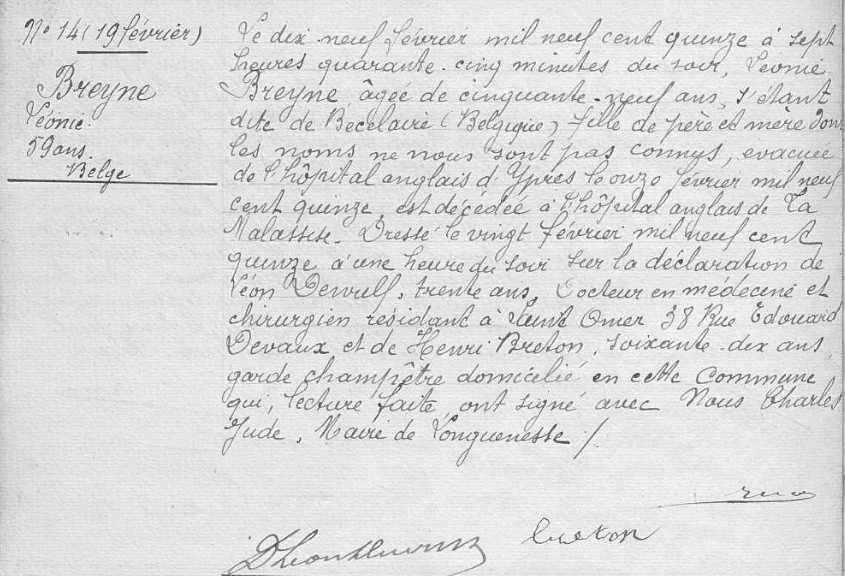 No 14 (19 février)
Breyne
Léonie
59 ans.
Belge
Le dix-neuf février mil neuf cent quinze à sept
heures quarante-cinq minutes du soir, Léonie
Breyne âgée de cinquante-neuf ans, s'étant
dite de Becelaire (Belgique) fille de père et mère dont
les noms ne nous sont pas connus, evacuée
de l'hôpital anglais d'Ypres le onze février mil neuf
cent quinze, est décédée à l'hôpital anglais de La
Malassise. Dressé le vingt février mil neuf cent
quinze à une heure du soir sur la déclaration de
Léon Dewulf, trente ans, Docteur en médecine et
chirurgien résidant à Saint Omer 38 Rue Edouard
Devaux et de Henri Breton, soixante-dix ans,
garde champêtre domicilié en cette Commune,
qui, lecture faite, ont signé avec Nous Charles
Jude, Maire de Longuenesse /.
breton